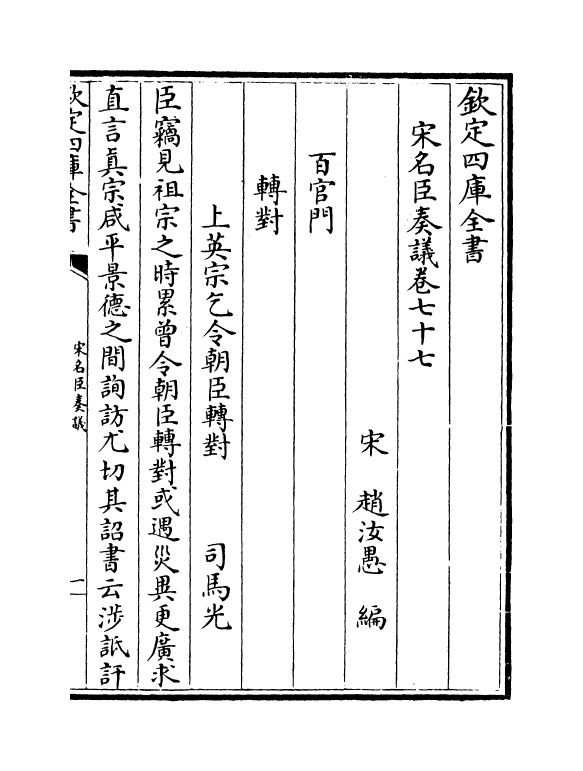 欽定四庫全書
宋名臣奏議卷七十七
宋　趙汝愚　編
百官門
轉對
上英宗乞令朝臣轉對　司馬光
臣竊見祖宗之時累曾令朝臣轉對或遇災異更廣求
直言眞宗咸平景德之間詢訪尤切其詔書云涉詆訐
欽定四庫全書
宋名臣奏議
一